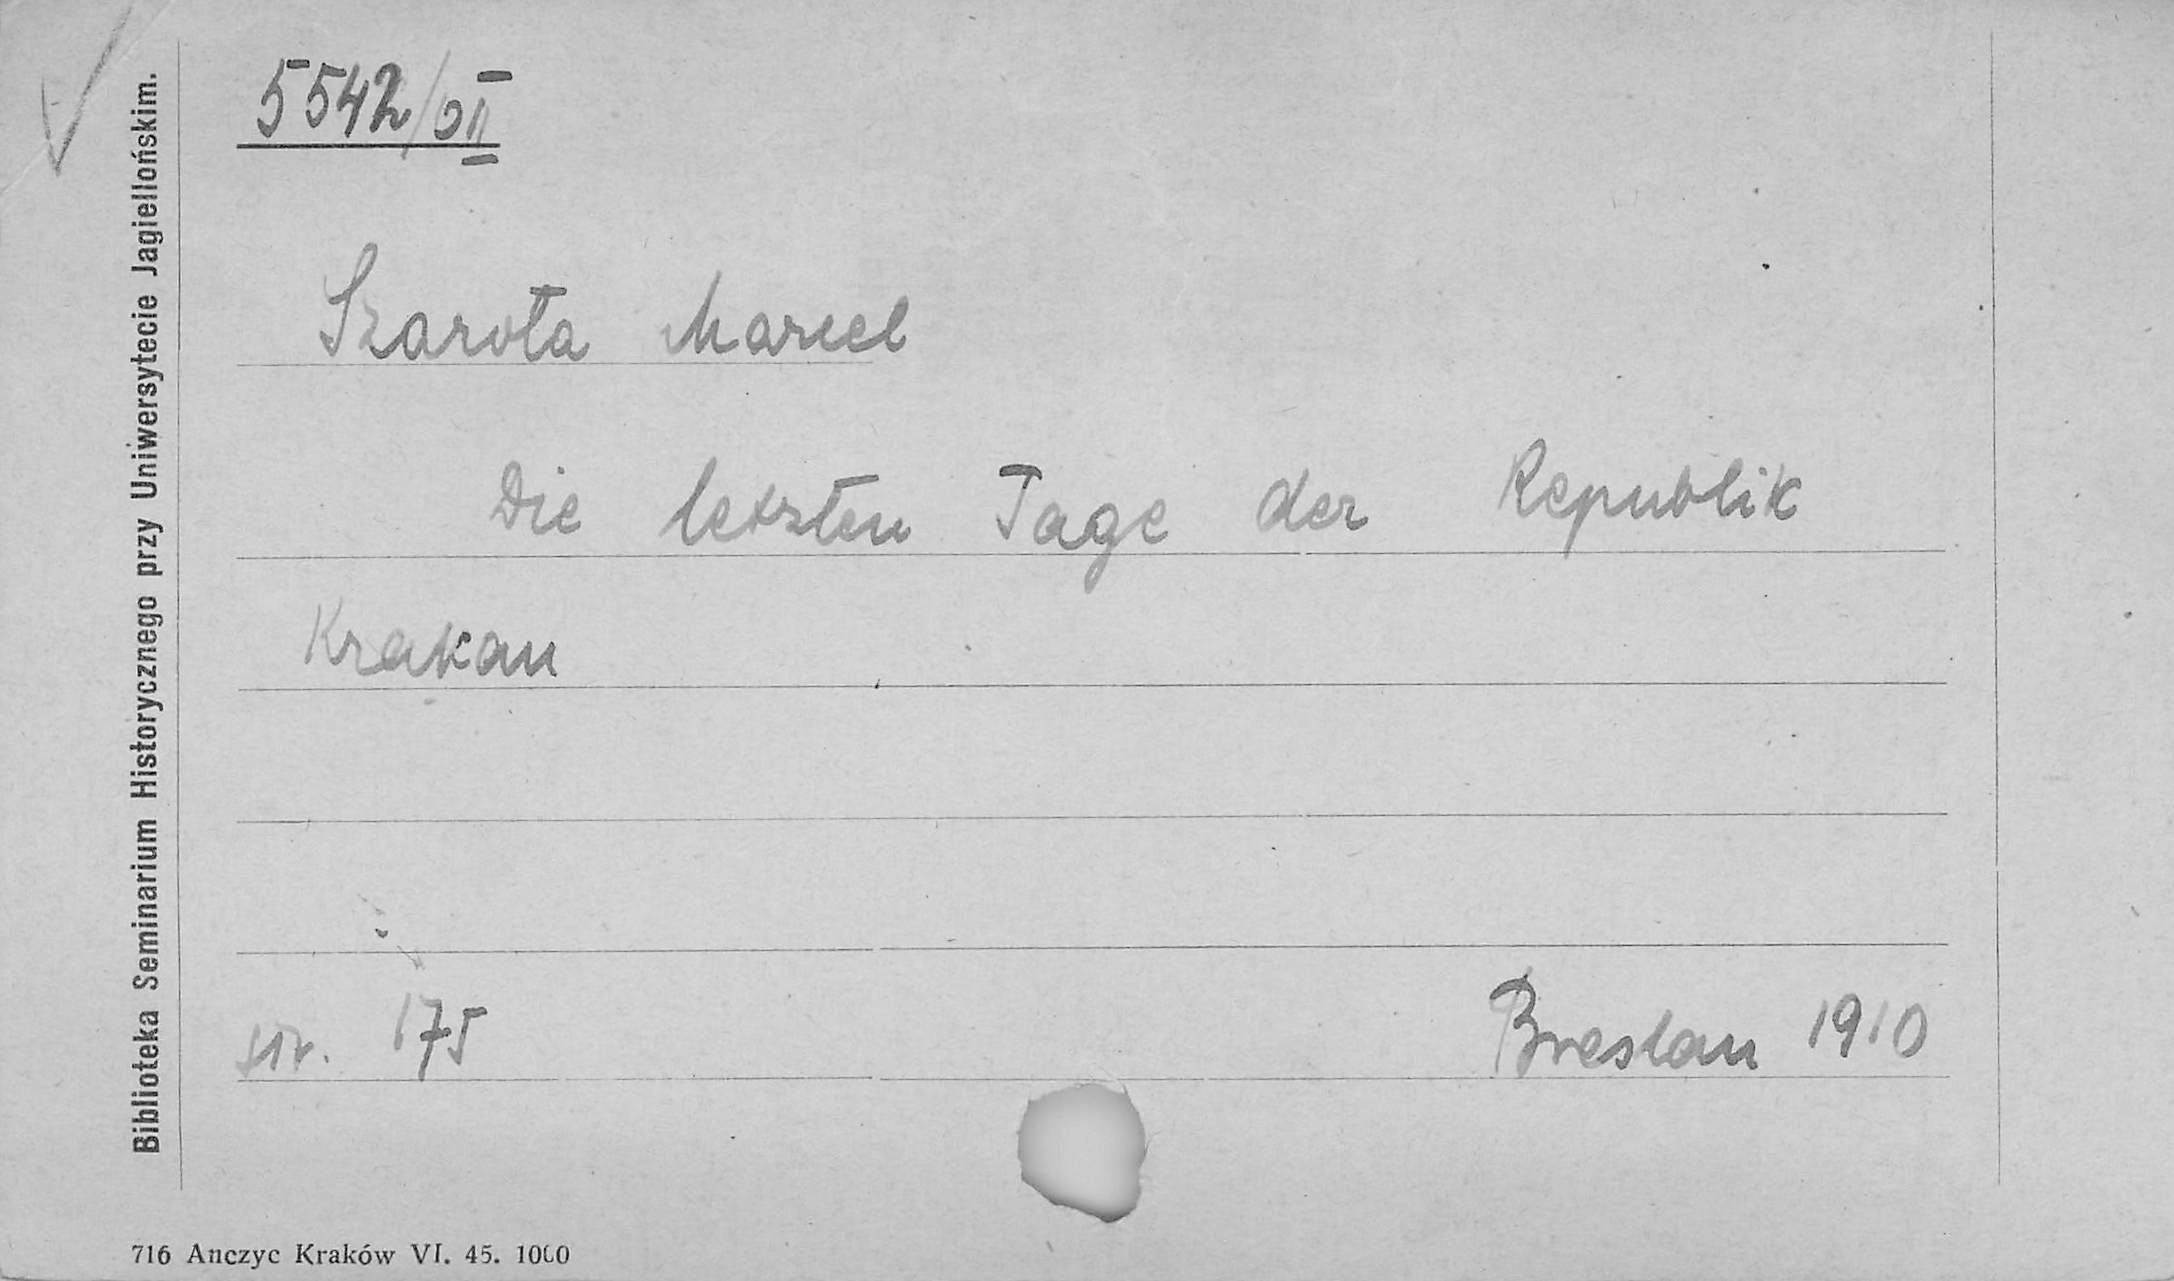 5542/b II
Szarota Marcel
Die letzten Tage der Republik
Krakau
str. 175
Breslau 1910
Biblioteka Seminarium Historycznego przy Uniwersytecie Jagiellońskim.
716 Anczyc Kraków VI. 45. 1000